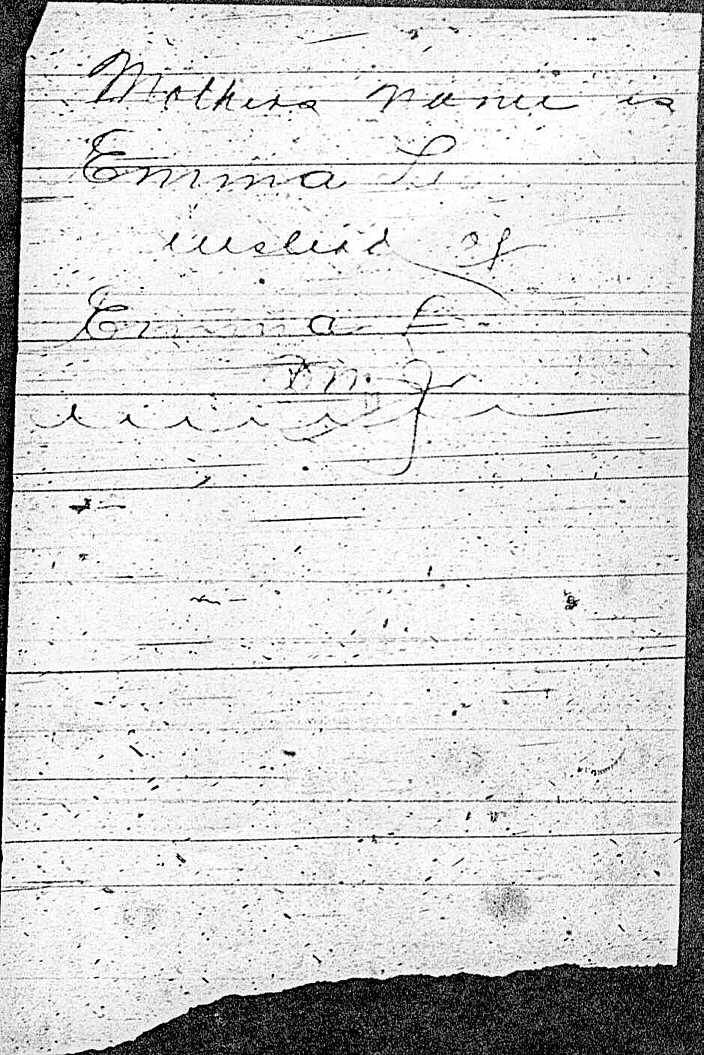 Mothers name is
Emma L
instead of
Emma F.